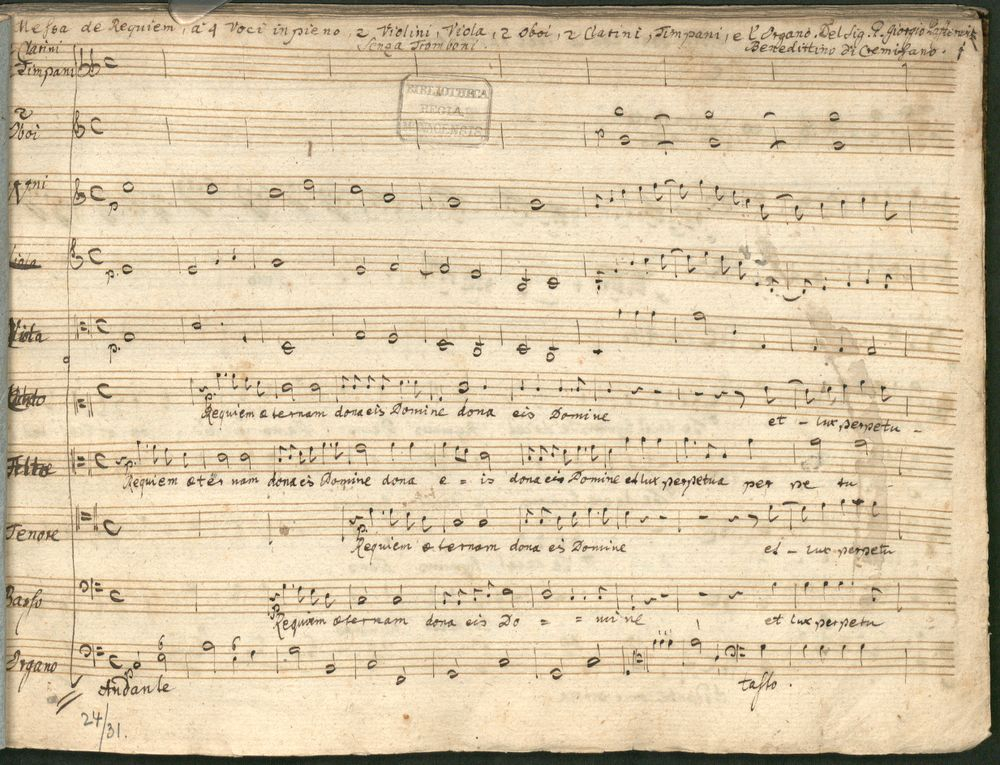 Messa de Requiem, a 4 Voci in pieno, 2 Violini, Viola, 2 Oboi, 2 Clarini, Timpani, e l'Organo. Del Sig. P. Giorgio
Senza Tromboni.
Benedittino di Cremifano.
Clarini
Timpani
BIBLIOTHECA
REGIA
MONACENSIS.
2
Oboi
Viola
Requiem æternam dona eis Domine dona eis Domine et lux perpetu
Requiem æternam dona eis Domine dona e = is dona eis Domine et lux perpetua per pe tu
Tenore
Requiem æternam dona eis Domine et lux perpetu
Basso
Requiem æternam dona eis Do = = mine et lux perpetu
Organo
6 6
Andante
tasto.
24/31.